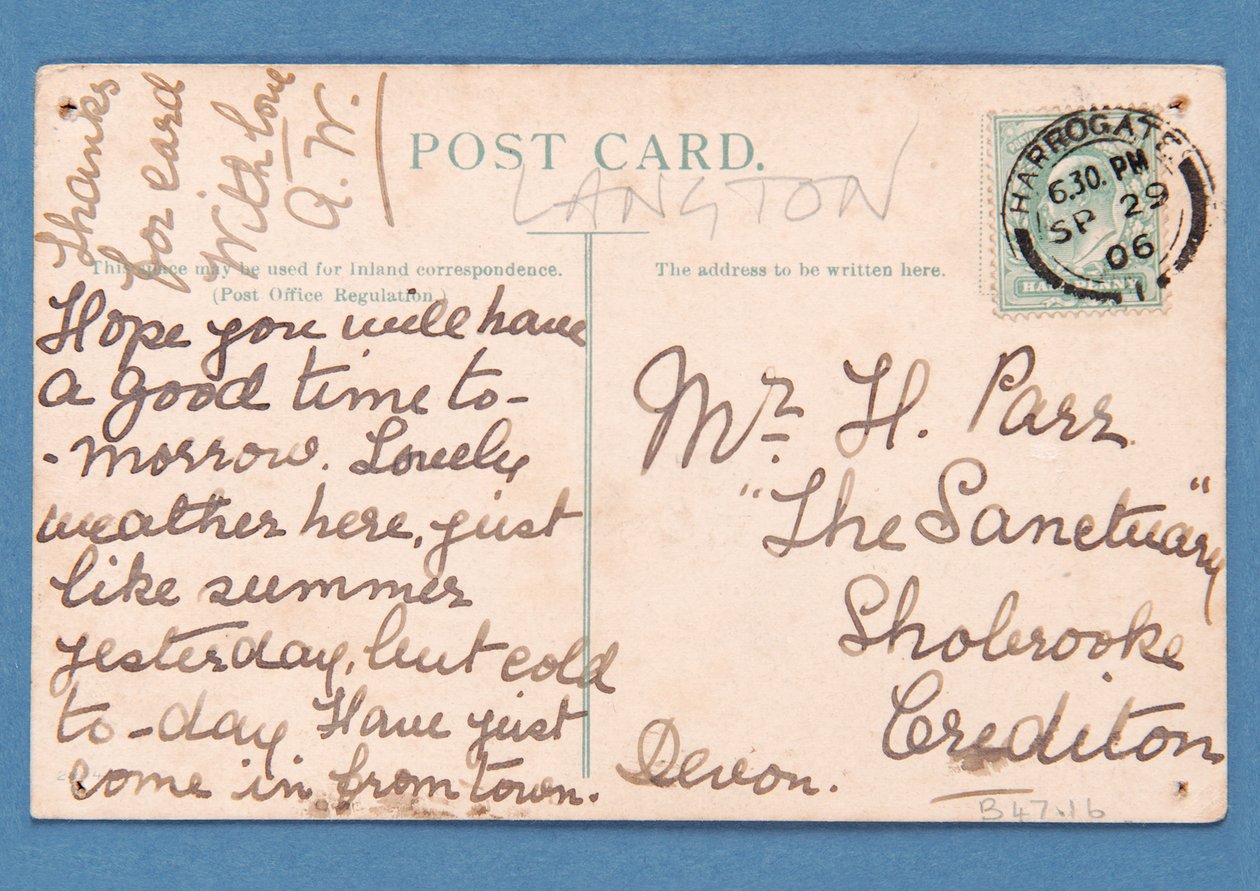 Thanks
for card
With love
A. W.
POST CARD.
LANGTON
HARROGATE
6.30. PM
SP 29
06
HALFPENNY
This space may be used for Inland correspondence.
(Post Office Regulation.)
The address to be written here.
Hope you will have
a good time to-
-morrow. Lovely
weather here, just
like summer
yesterday, but cold
to-day. Have just
come in from town.
Mr. H. Parr
"The Sanctuary"
Shobrooke
Crediton
Devon.
B47.16